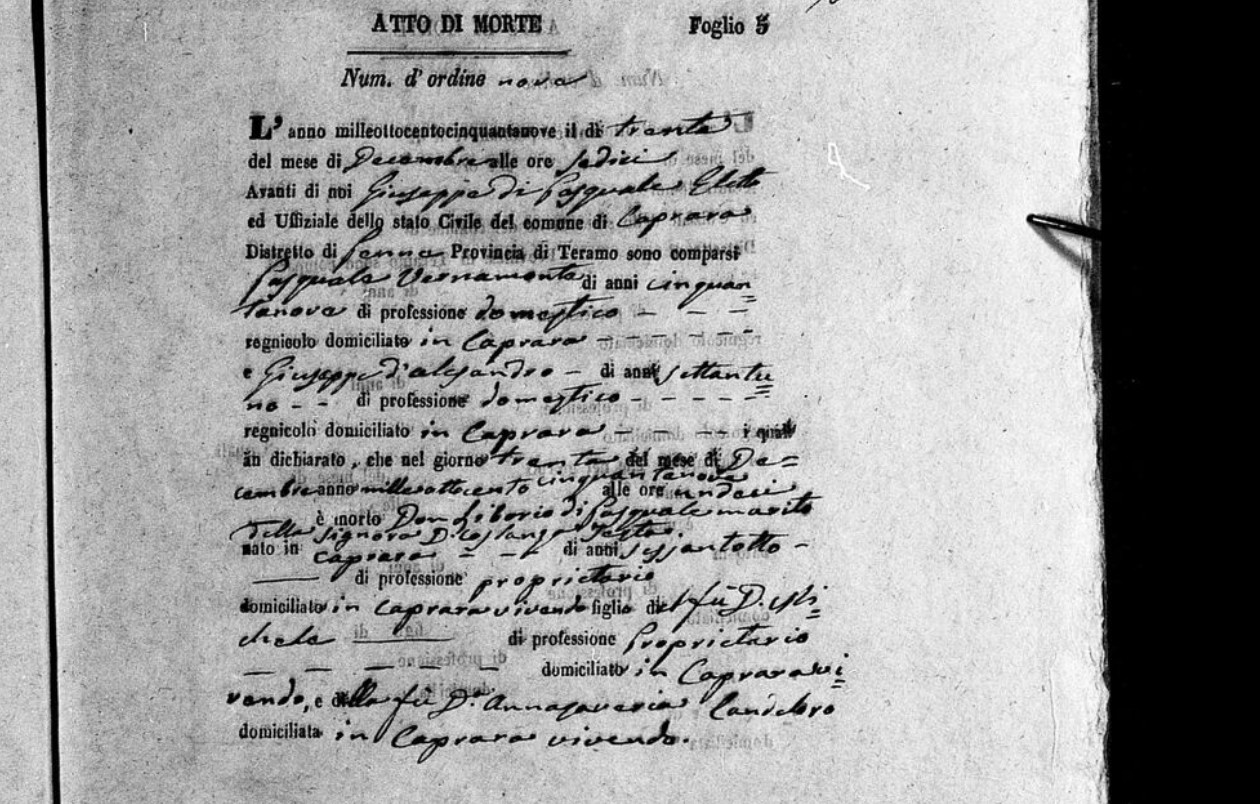 ATTO DI MORTE Foglio 5
Num. d'ordine nove
L' anno milleottocentocinquantanove il dì trenta
del mese di Decembre alle ore sedici
Avanti di noi Giuseppe di Pasquale Eletto
ed Uffiziale dello stato Civile del comune di Caprara
Distretto di Penne Provincia di Teramo sono comparsi
Pasquale Vernamonte di anni cinquan=
tanove di professione domestico - - -
regnicolo domiciliato in Caprara - - - - -
e Giuseppe d'alesandro - di anni settantu=
no - - di professione domestico - - - - -
regnicolo domiciliato in Caprara - - - - i quali
àn dichiarato, che nel giorno trenta del mese di De=
cembre anno milleottocento cinquantanove alle ore undeci
è morto Don Liborio di Pasquale marito
della Signora D. Costanza
nato in Caprara - - di anni sessantotto -
— di professione proprietario
domiciliato in Caprara vivendo figlio del fù D. Mi=
chele — di professione Proprietario
- - - - - - domiciliato in Caprara vi=
vendo, e della fù D.a Annasaveria Candeloro
domiciliata in Caprara vivendo.